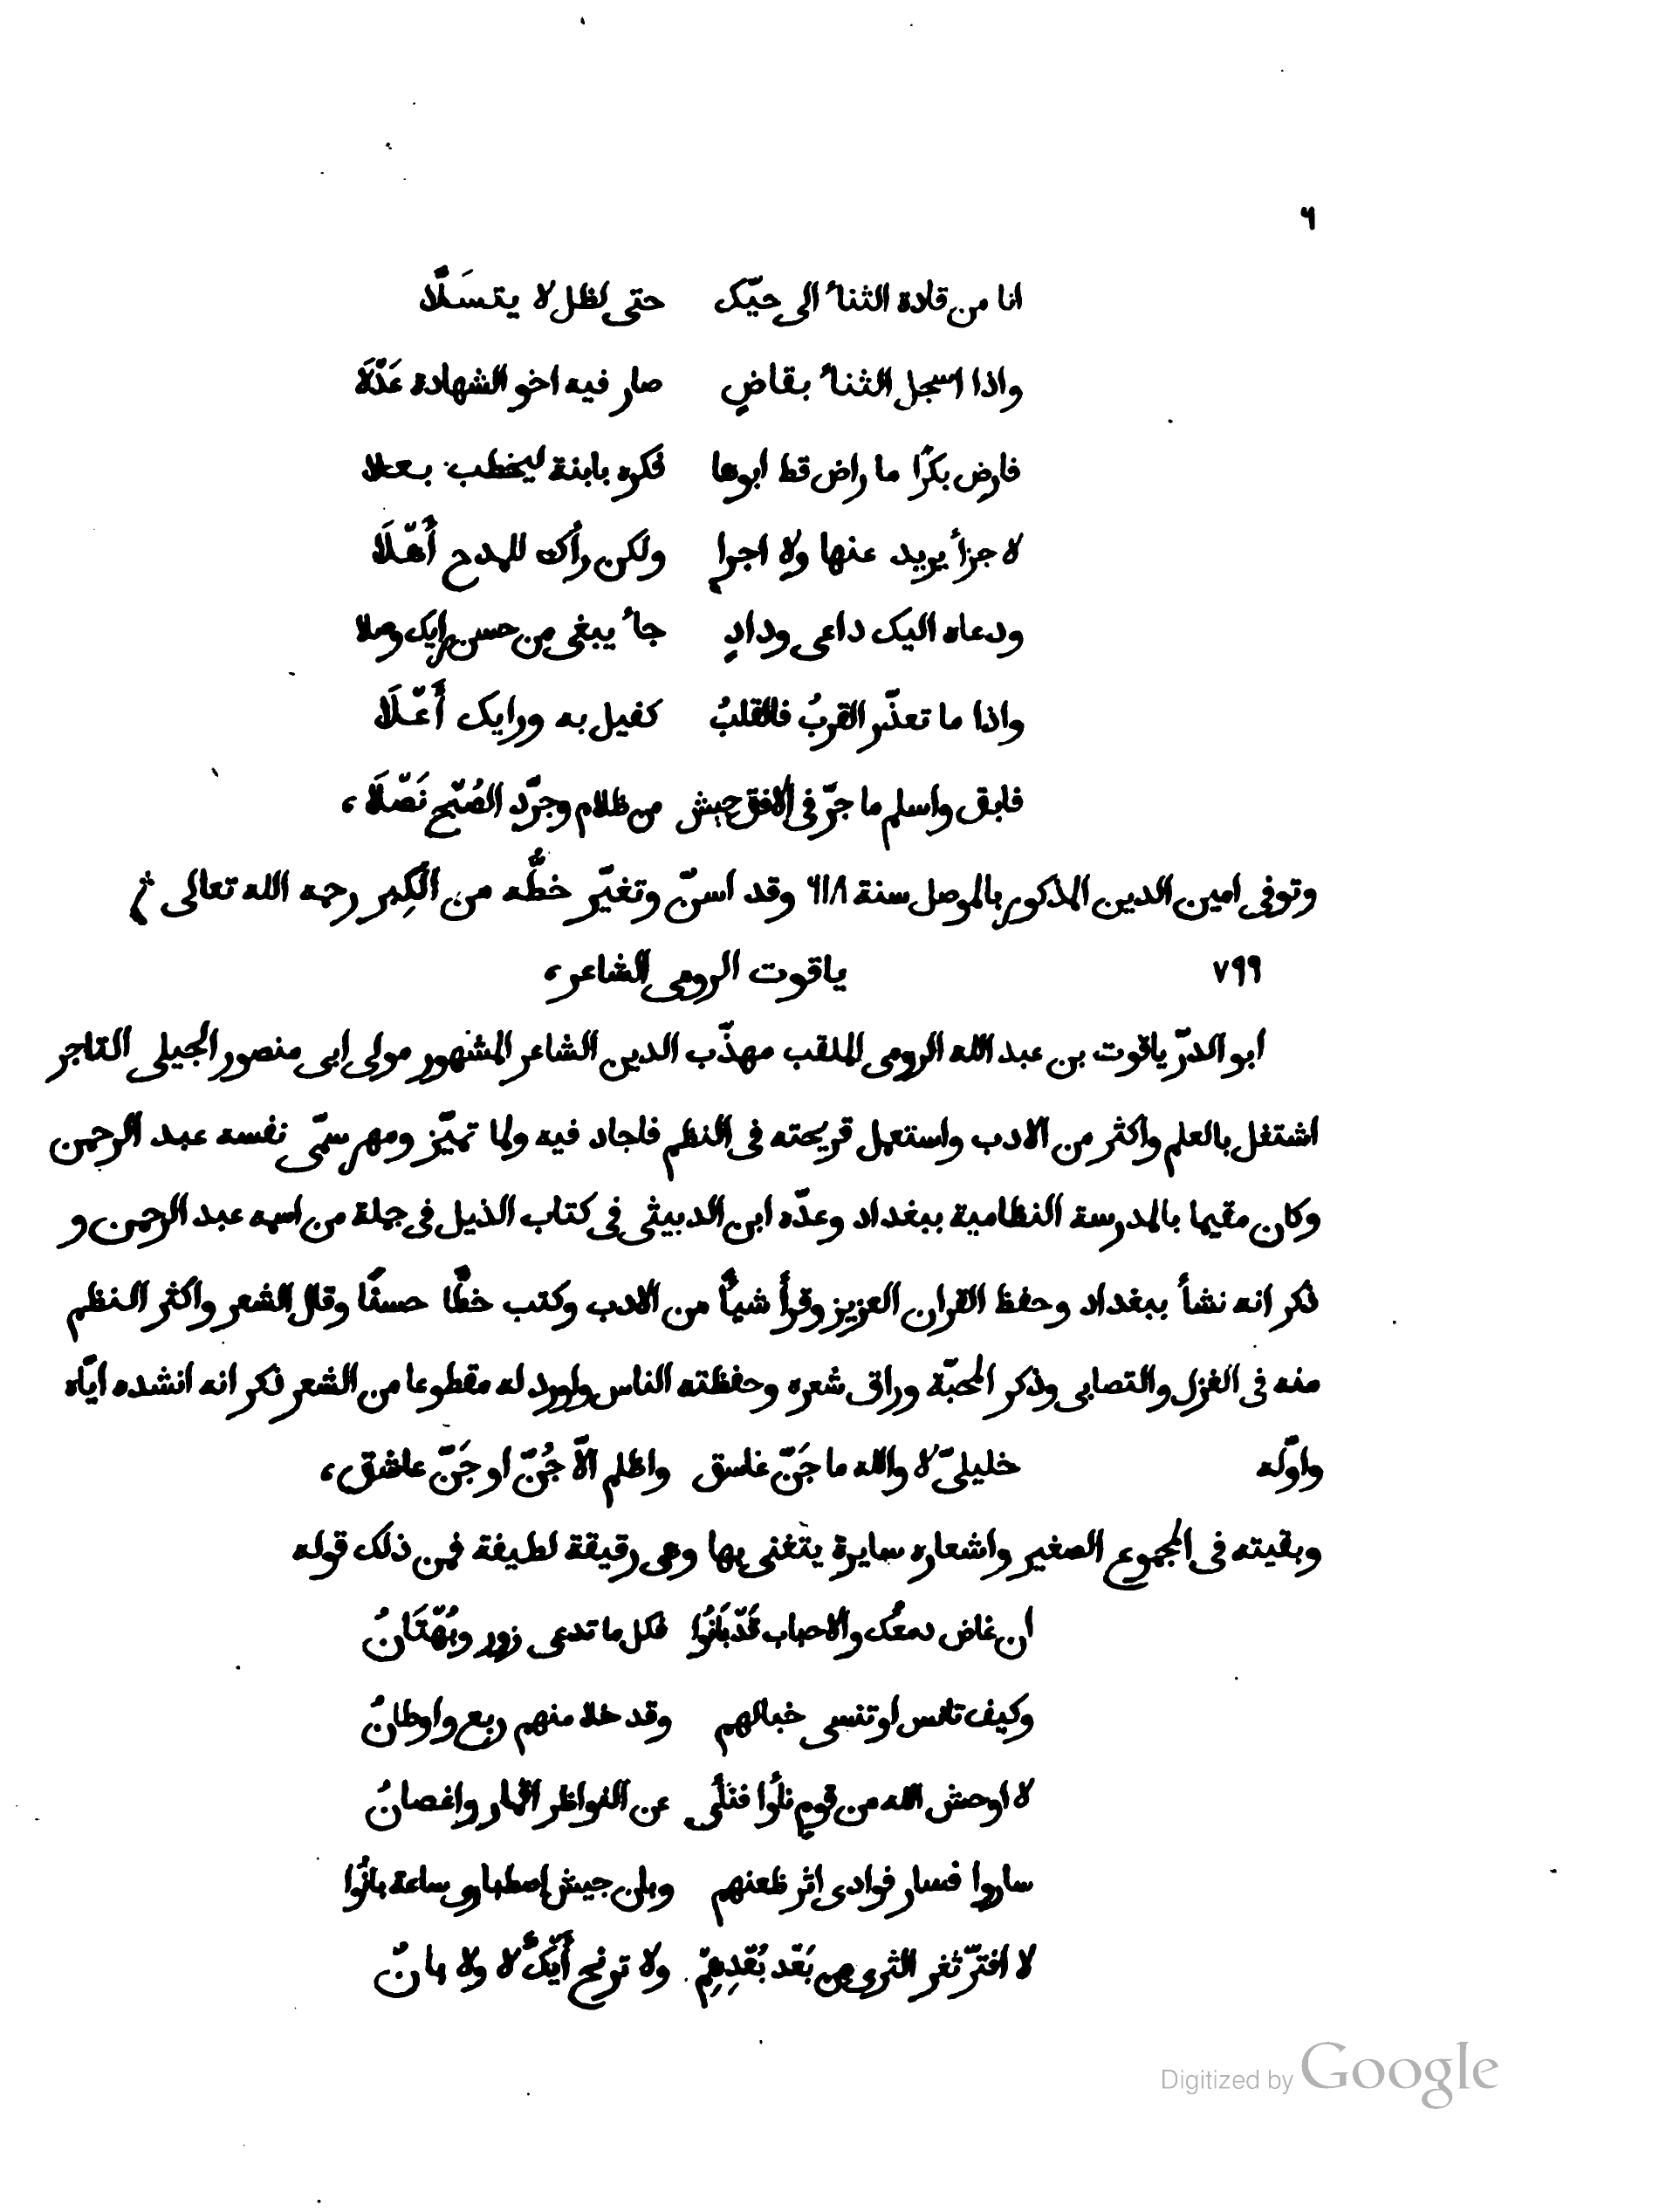 ٦
انا من قادة الثناء الى حيّك حتى لظل لا يتسَلَّا
واذا اسجل الثناء بقاضٍ صار فيه اخو الشهادة عَدْلَا
فارض بكرًا ما راض قط ابوها فكره بابنة ليخطب بعلا
لا جزاء يريد عنها ولا اجرا ولكن رأك للمدح أَهْلَا
ودعاه اليك داعى ودادٍ جاء يبغى من حسن رايك وصلا
واذا ما تعذّر القربُ فالقلبُ كفيل به ورايك أَعْلَا
فابق واسلم ما جرّ فى الافق جيش من ظلام وجرّد الصُبْح نَصْلَا،
وتوفى امين الدين المذكور بالموصل سنة ٦١٨ وقد اسنّ وتغيّر خطُّه من الكِبر رحمه الله تعالى
٧٩٩ ياقوت الرومى الشاعر،
ابو الدرّ ياقوت بن عبد الله الرومى الملقب مهذّب الدين الشاعر المشهور مولى ابى منصور الجيلى التاجر
اشتغل بالعلم واكثر من الادب واستعمل قريحته فى النظم فاجاد فيه ولما تميّز ومهر سمّى نفسه عبد الرحمن
وكان مقيما بالمدرسة النظامية ببغداد وعدّه ابن الدبيثى فى كتاب الذيل فى جملة من اسمه عبد الرحمن و
ذكر انه نشأ ببغداد وحفظ القران العزيز وقرأ شيأً من الادب وكتب خطًّا حسنًا وقال الشعر واكثر النظم
منه فى الغزل والتصابى وذكر المحبّة وراق شعره وحفظته الناس واورد له مقطوعا من الشعر ذكر انه انشده ايّاه
واوّله خليلىّ لا والله ما جَنّ غاسق واظلم الّا جُنّ او جَنّ عاشق،
وبقيته فى المجموع الصغير واشعاره سايرة يتغنى بها وهى رقيقة لطيفة فمن ذلك قوله
ان غاض دمعُك والاحباب قَدْ بَانُوا فكل ما تدعى زور وبُهْتَانُ
وكيف تانس او تنسى خيالهم وقد خلا منهم ربع واوطانُ
لا اوحش الله من قومٍ نأوا فنأى عن النواظر اقمار واغصانُ
ساروا فسار فوادى اثر ظعنهم وبان جيش اصطبارى ساعة بانُوا
لا افترّ ثغر الثرى من بَعْد بُعْدِهِمْ ولا ترنح أَيْكٌ لا ولا بانُ
Digitized by Google